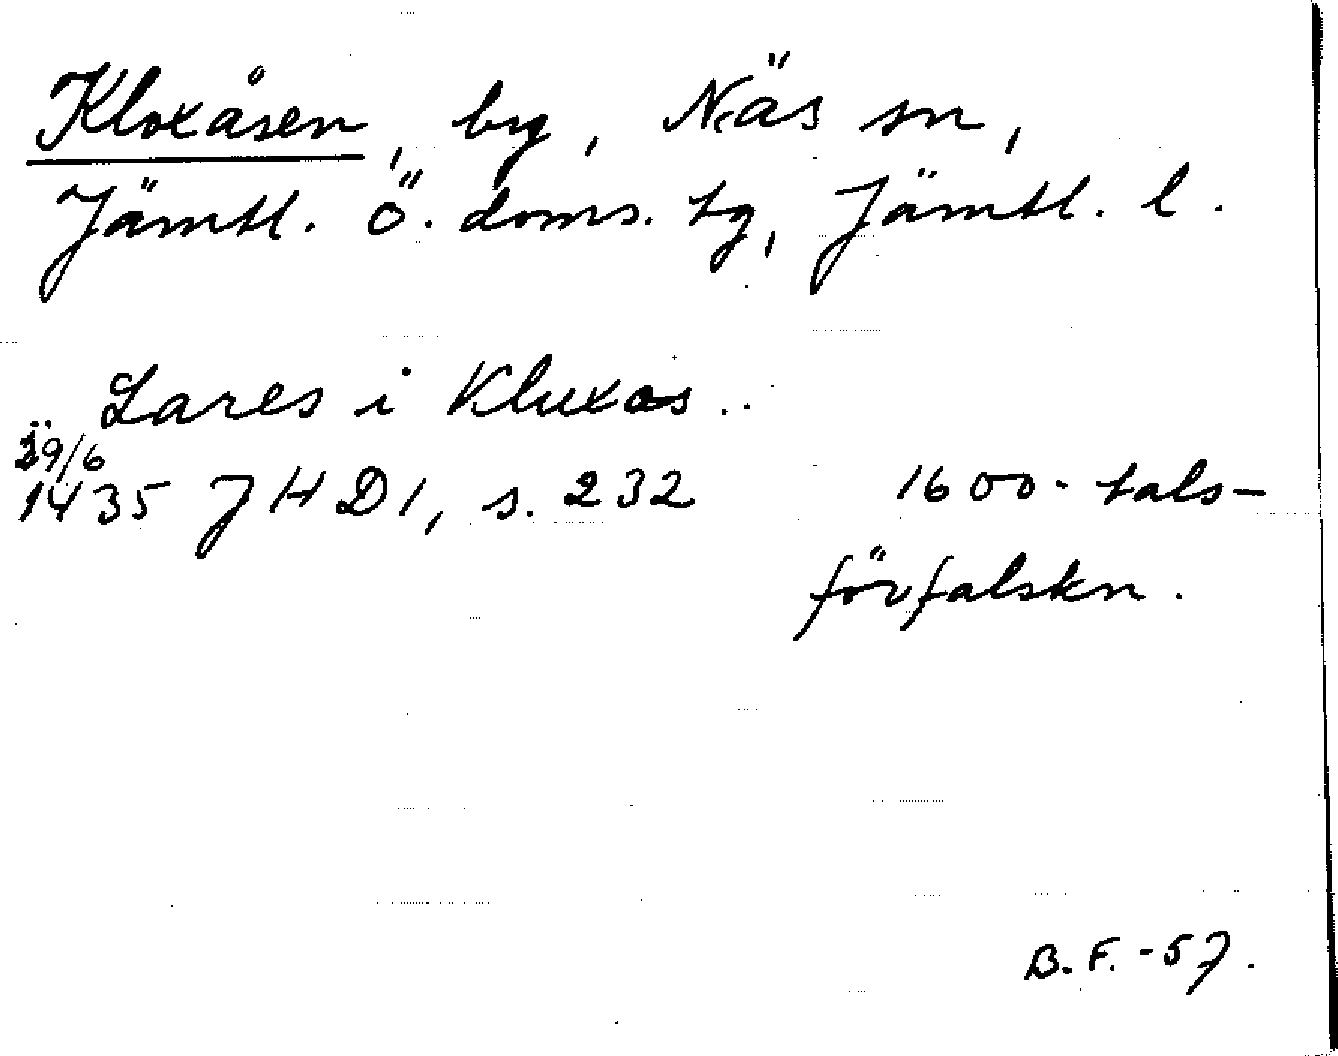 Kloxåsen, by, Näs sn,
Jämtl. ö. doms. tg, Jämtl. l.
Lares i Kluxas..
29/6
1435 JHD1, s. 232 1600-tals-
förfalskn.
B.F.-57.